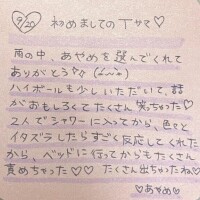 9/20 初めましてのTサマ♡
雨の中、あやめを選んでくれて
ありがとう
ハイボールも少しいただいて、話
がおもしろくてたくさん笑っちゃった♡
2人でシャワーに入ってから、色々と
イタズラしたらすごく反応してくれた
から、ベッドに行ってからもたくさん
責めちゃった♡♡ たくさん出ちゃったね♡
♡あやめ♡